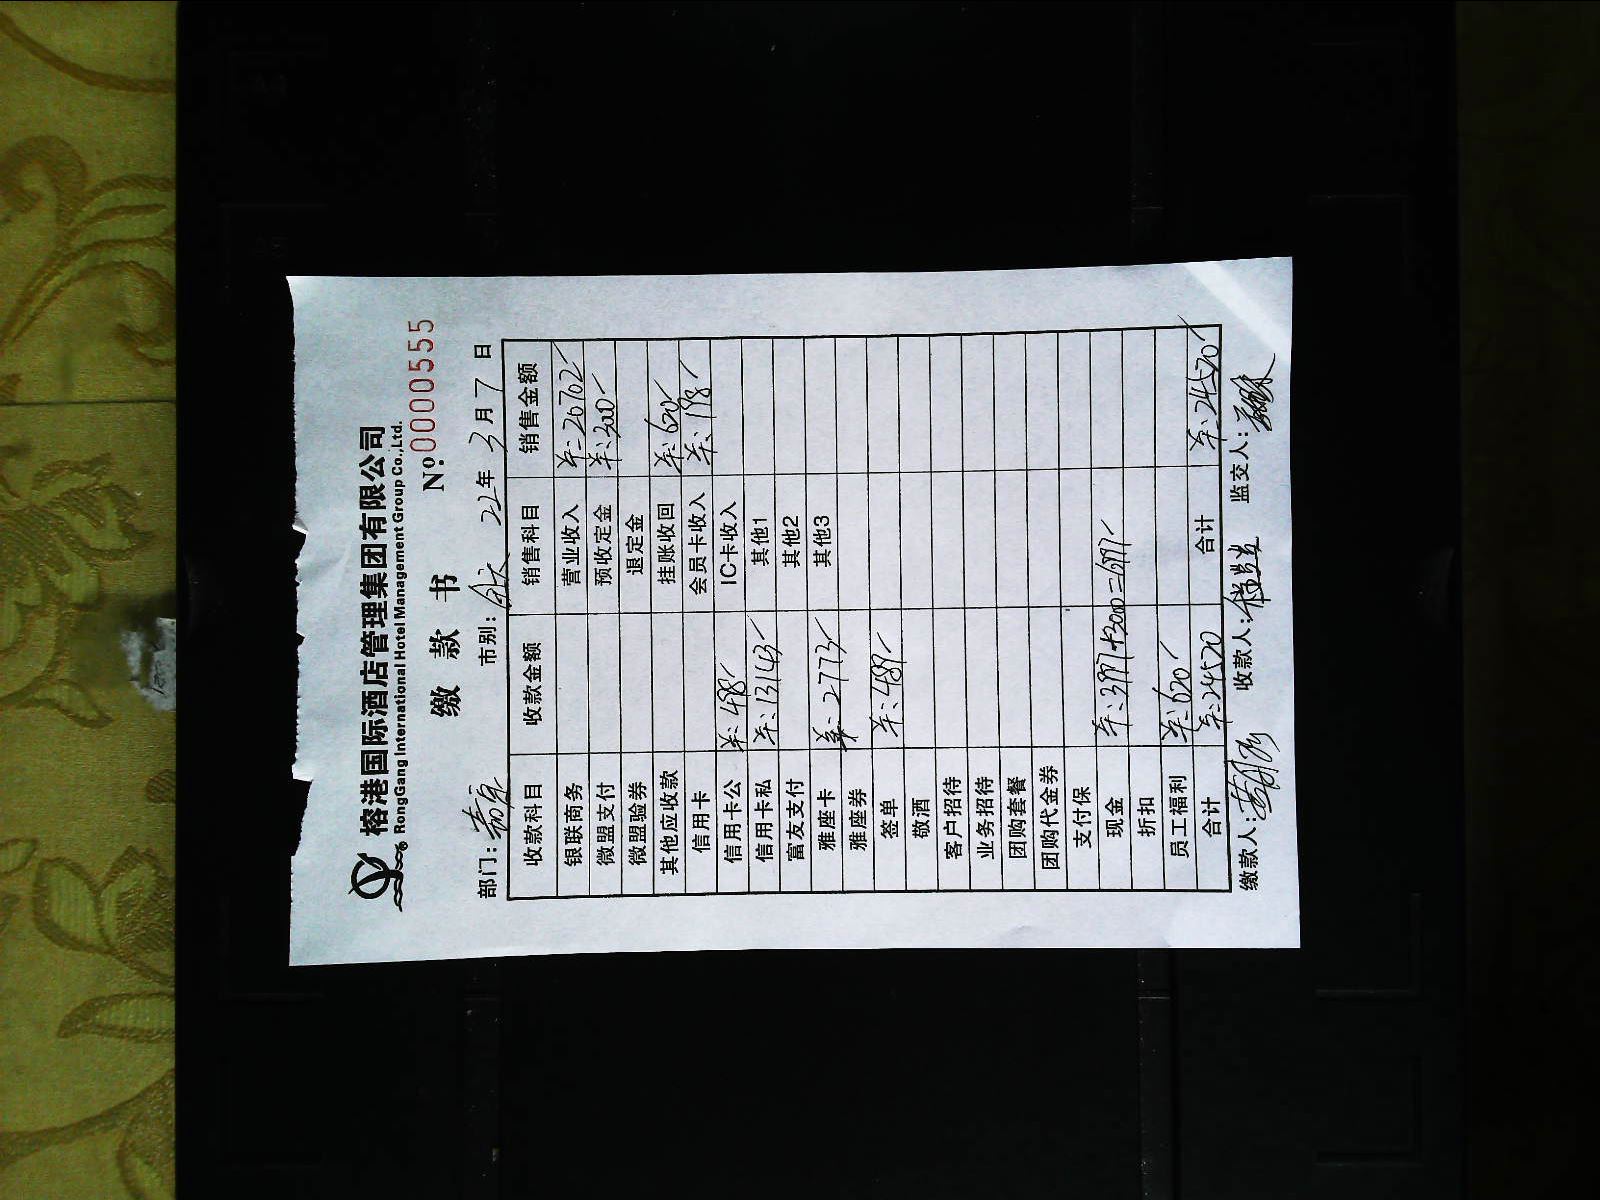 榕港国际酒店管理集团有限公司
RongGang International Hotel Management Group Co.,Ltd.
缴 款 书 №0000555
部门: 市别: 22年3月7日
收款科目 收款金额 销售科目 销售金额
银联商务 营业收入 ¥:20702
微盟支付 预收定金 ¥:3000
微盟验券 退定金
其他应收款 挂账收回 ¥:620
信用卡 会员卡收入 ¥:198
信用卡公 ¥:498 IC卡收入
信用卡私 ¥:13143 其他1
富友支付 其他2
雅座卡 ¥:2773 其他3
雅座券
签单 ¥:489
敬酒
客户招待
业务招待
团购套餐
团购代金券
支付保
现金 ¥:3997+3000=6997
折扣
员工福利 ¥:620
合计 ¥:24520 合计 ¥:24520
缴款人: 收款人: 监交人: